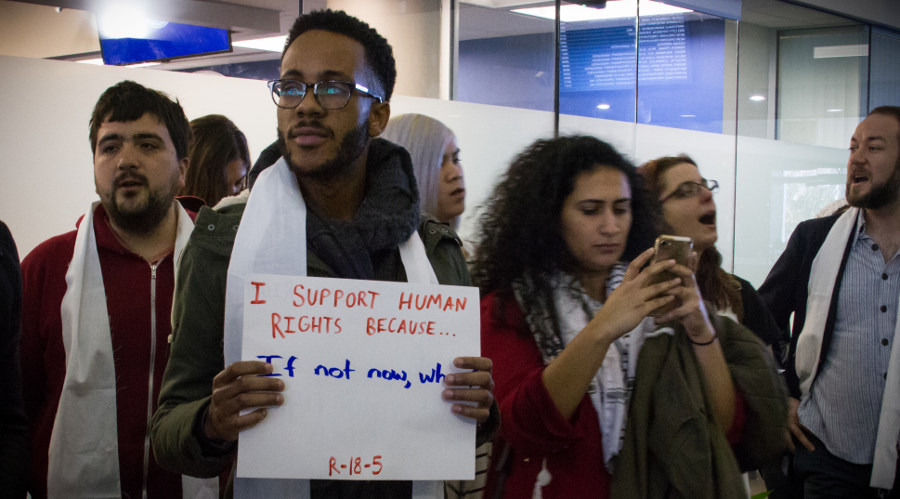 I SUPPORT HUMAN
RIGHTS BECAUSE...
If not now, wh
R-18-5